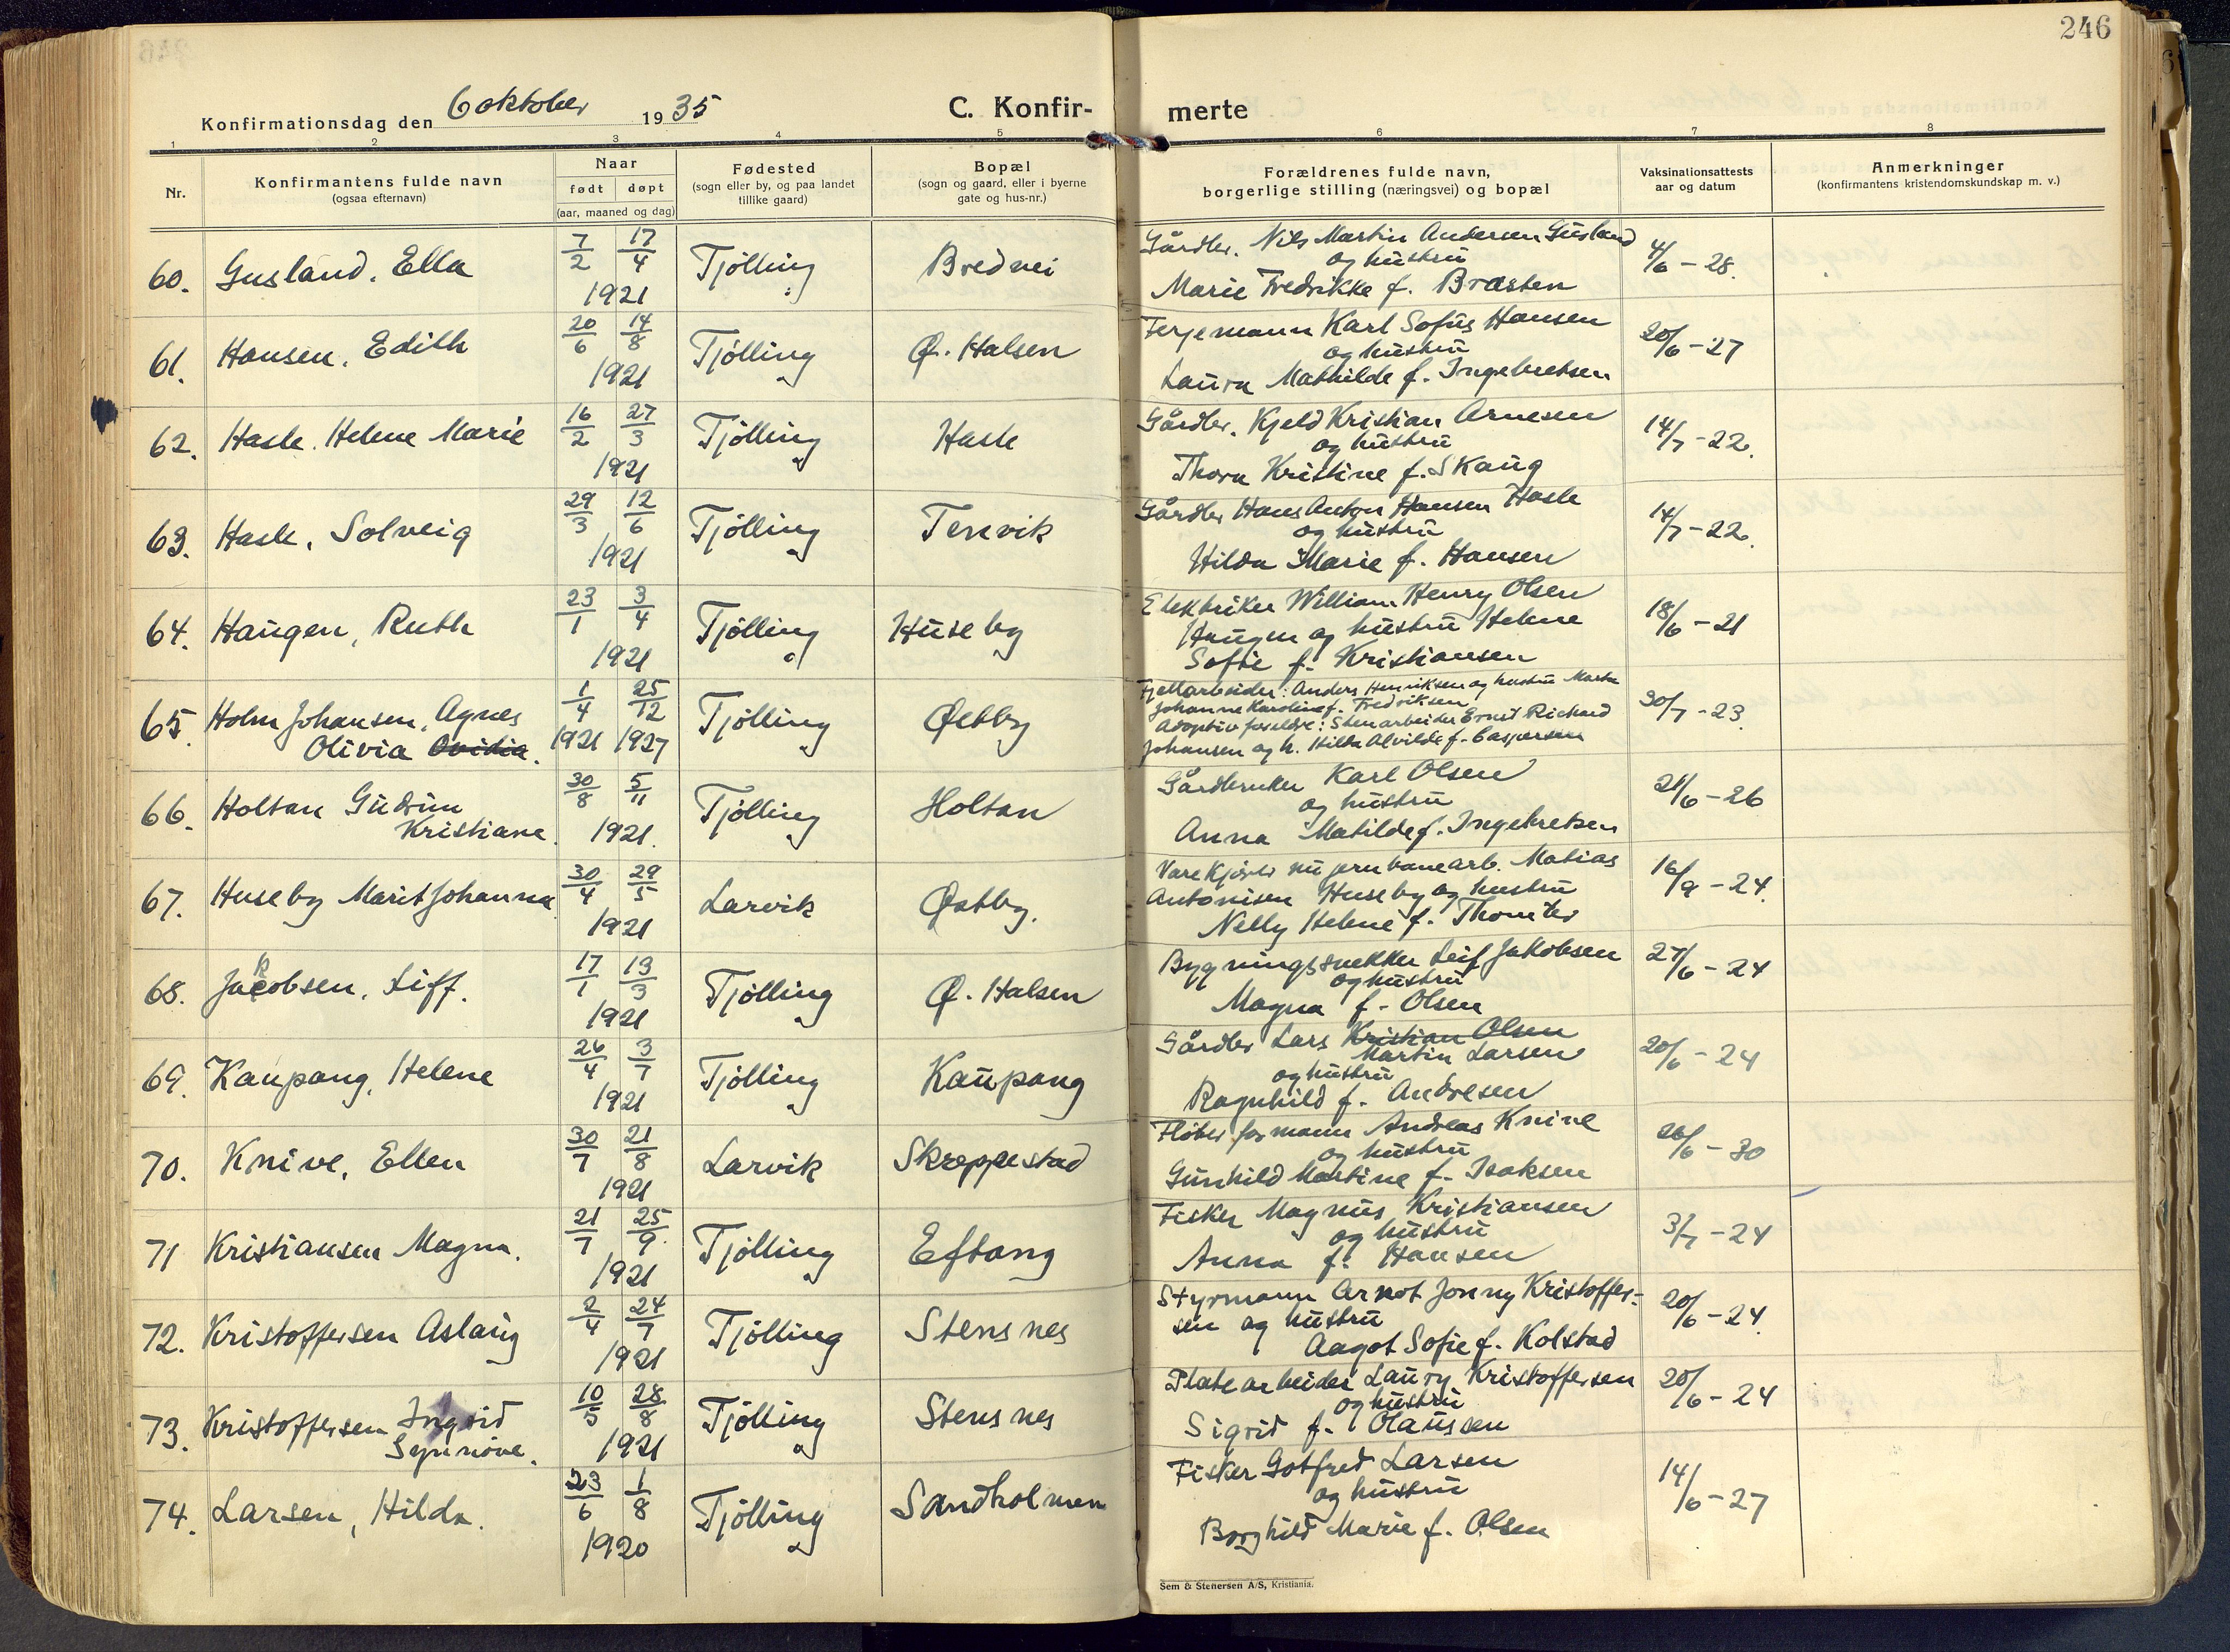 246
Konfirmationsdag den 6 oktober 1935 C. Konfir- merte
1 2 3 4 5 6 7 8
Nr. Konfirmantens fulde navn (ogsaa efternavn) Naar født døpt (aar, maaned og dag) Fødested (sogn eller by, og paa landet tillike gaard) Bopæl (sogn og gaard, eller i byerne gate og hus-nr.) Forældrenes fulde navn, borgerlige stilling (næringsvei) og bopæl Vaksinationsattests aar og datum Anmerkninger (konfirmantens kristendomskundskap m. v.)
60. Gusland, Ella 7/2 17/4 1921 Tjølling Bredvei Gårdbr. Nils Martin Andersen Gusland 4/6 - 28.
og hustru
Marie Fredrikke f. Bråsten
61. Hansen, Edith 20/6 14/8 1921 Tjølling Ø. Halsen Ferjemann Karl Sofus Hansen 20/6 - 27
og hustru
Laura Mathilde f. Ingebretsen
62. Hasle, Helene Marie 16/2 27/3 1921 Tjølling Hasle Gårdbr. Kjeld Kristian Arnesen 14/7 - 22.
og hustru
Thora Kristine f. Skaug
63. Hasle, Solveig 29/3 12/6 1921 Tjølling Tenvik Gårdbr Hans Anton Hansen Hasle 14/7 - 22.
og hustru
Hilda Marie f. Hansen
64. Haugen, Ruth 23/1 3/4 1921 Tjølling Huseby Elektriker William Henry Olsen 18/6 - 21
Haugen og hustru Helene
Sofie f. Kristiansen
65. Holm Johansen, Agnes 1/4 1921 25/12 1927 Tjølling Østby Fjellarbeider: Anders Henriksen og hustru Marta 30/7 - 23.
Olivia Ovidia. Johanne Karoline f. Fredriksen
Adoptivforeldre: Stenarbeider Ernst Richard
Johansen og h. Hilda Alvilde f. Caspersen
66. Holtan Gudrun 30/8 5/11 1921. Tjølling Holtan Gårdbruker Karl Olsen 21/6 - 26
Kristiane. og hustru
Anna Matilde f. Ingebretsen
67. Huseby Marit Johanna 30/4 29/5 1921 Larvik Østby. Varekjører nu jernbanearb. Matias 16/9 - 24.
Antonisen Huseby og hustru
Nelly Helene f. Thomter
68. Jacobsen, Liff. 17/1 13/3 1921 Tjølling Ø. Halsen Bygningssnekker Leif Jakobsen 27/6 - 24
og hustru
Magna f. Olsen
69. Kaupang, Helene 26/4 3/7 1921 Tjølling Kaupang Gårdbr Lars Kristian Olsen 20/6 - 24
Martin Larsen
og hustru
Ragnhild f. Andresen
70. Knive, Ellen 30/7 21/8 1921 Larvik Skreppestad Fløterformann Andreas Knive 26/6 - 30
og hustru
Gunhild Martine f. Isaksen
71 Kristiansen Magna. 21/7 25/9. 1921 Tjølling Eftang Fisker Magnus Kristiansen 3/7 - 24
og hustru
Anna f. Hansen
72. Kristoffersen Aslaug 2/4 24/7 1921 Tjølling Stensnes Styrmann Arnot Jonny Kristoffer- 20/6 - 24.
sen og hustru
Aagot Sofie f. Kolstad
73. Kristoffersen Ingrid 10/5 28/8 1921 Tjølling Stensnes Platearbeider Laury Kristoffersen 20/6 - 24
Synnöve. og hustru
Sigrid f. Olaussen
74. Larsen, Hilda. 23/6 1/8 1920 Tjølling Sandholmen Fisker Gotfred Larsen 14/6 - 27
og hustru
Borghild Marie f. Olsen
Sem & Stenersen A/S, Kristiania.